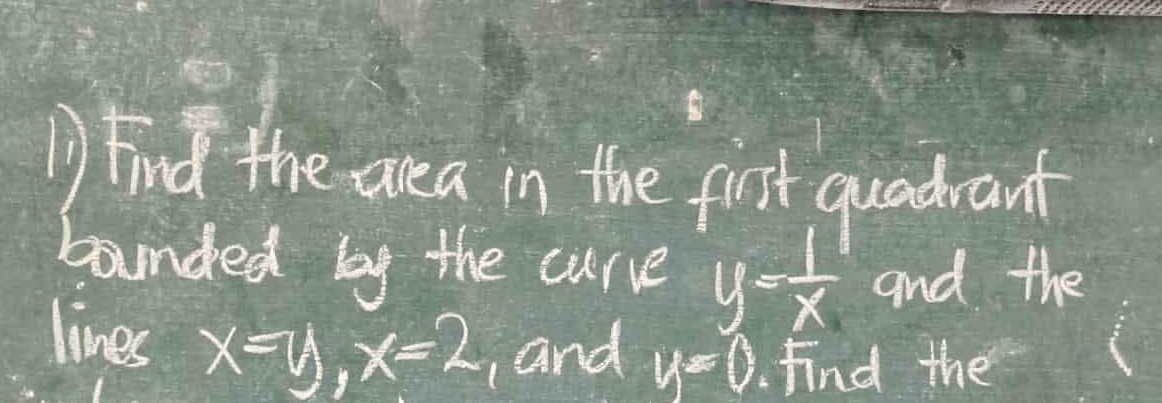 1) Find the area in the first quadrant
bounded by the curve y=1/x and the
lines x=y, x=2, and y=0. Find the